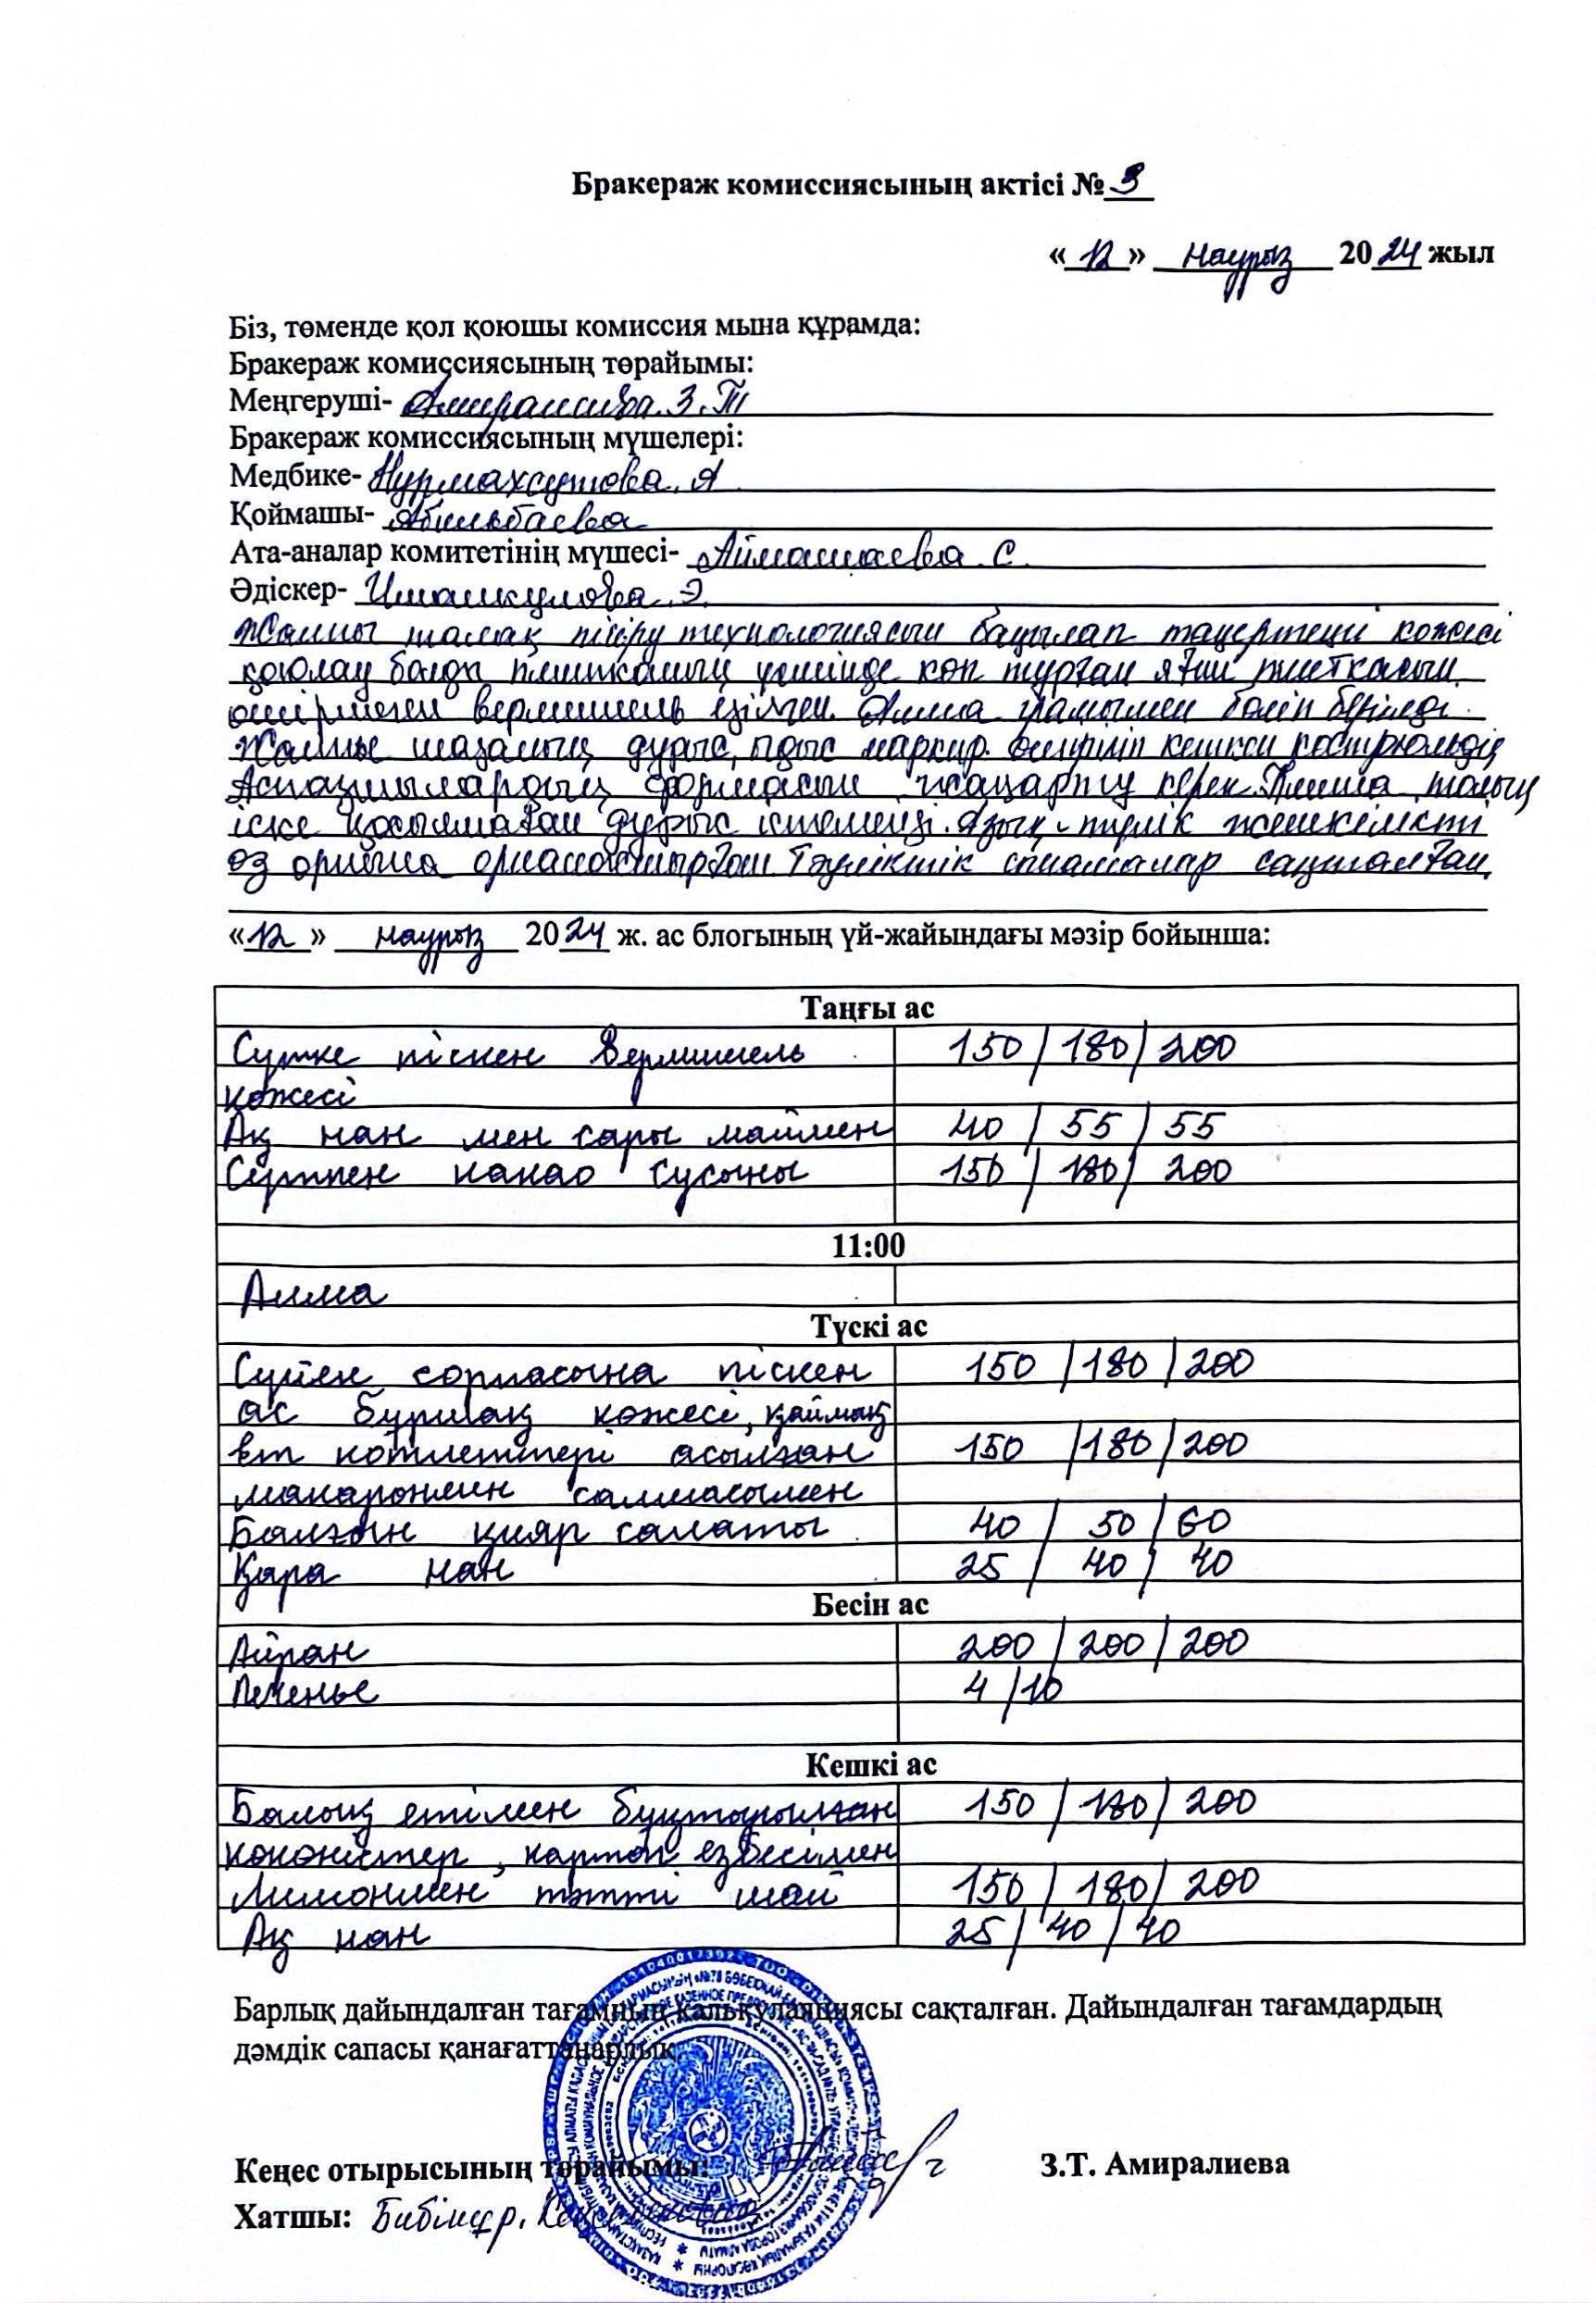 Бракераж комиссиясының актісі № 3
« 12 » наурыз 20 24 жыл
Біз, төменде қол қоюшы комиссия мына құрамда:
Бракераж комиссиясының төрайымы:
Меңгеруші- Амиралиева З.Т
Бракераж комиссиясының мүшелері:
Медбике- Нурмахсутова. А
Қоймашы- Абильбаева
Ата-аналар комитетінің мүшесі- Аймашаева С.
Әдіскер- Имашкулова Э.
Жалпы тамақ пісіру технологиясын бақылап таңертеңгі көжесі
қоюлау болды плитканың үстінде көп тұрған яғни плиткасын
өшірмеген вермишель езілген. Алма грамымен бөліп берілді.
Жалпы тазалық дұрыс, ыдыс маркир. өшіріліп кешкен кострюльдің
Аспазшылардың формасын жаңарту керек. Плита толық
іске қосылмаған дұрыс істемейді. Азық-түлік жеткілікті
өз орнына орналастырған Тәуліктік сынамалар сақталған.
« 12 » наурыз 20 24 ж. ас блогының үй-жайындағы мәзір бойынша:
Таңғы ас
Сүтке піскен Вермишель 150 / 180 / 200
көжесі
Ақ нан мен сары маймен 40 / 55 / 55
Сүтпен какао сусыны 150 / 180 / 200
11:00
Алма
Түскі ас
Сүйек сорпасына піскен 150 / 180 / 200
ас бұршақ көжесі, қаймақ
Ет котлеттері асылған 150 / 180 / 200
макаронмен салмасымен
Балғын қияр салаты 40 / 50 / 60
Қара нан 25 / 40 / 40
Бесін ас
Айран 200 / 200 / 200
Печенье 4 / 10
Кешкі ас
Балық етімен бұқтырылған 150 / 180 / 200
көкөністер, картоп езбесімен
Лимонмен тәтті шай 150 / 180 / 200
Ақ нан 25 / 40 / 40
Барлық дайындалған тағамның калькуляциясы сақталған. Дайындалған тағамдардың
дәмдік сапасы қанағаттанарлық.
Кеңес отырысының төрайымы: З.Т. Амиралиева
Хатшы: Бибінұр.